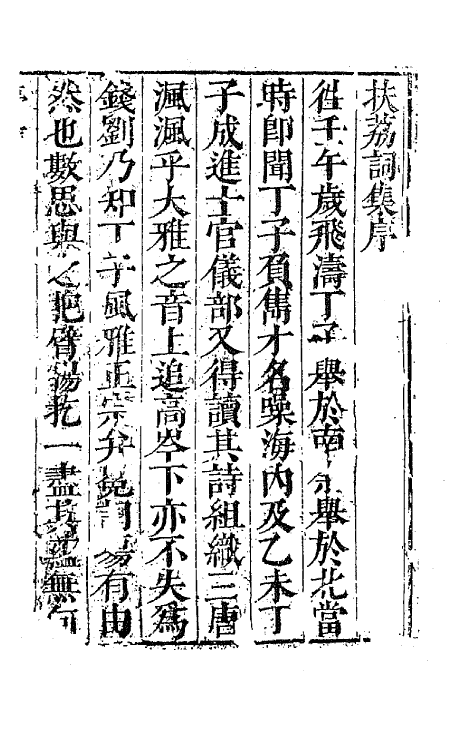 扶荔詞集序
徃壬午歲飛濤丁子舉於南余舉於北當
時卽聞丁子負雋才名噪海内及乙未丁
子成進士官儀部又得讀其詩組織三唐
渢渢乎大雅之音上追高岑下亦不失爲
錢劉乃知丁子風雅正宗弁冕有由
然也數思與之把臂揚扢一盡其蘊無何